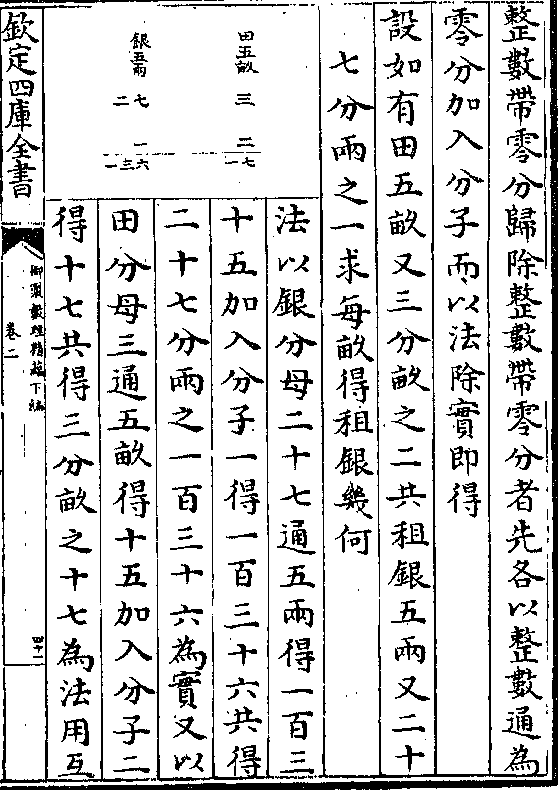 整數帶零分歸除整數帶零分者先各以整數通為
零分加入分子而以法除實即得
設如有田五畝又三分畝之二共租銀五兩又二十
七分兩之一求每畝得租銀幾何
田五畝 三 二
一七
銀五兩 二七 一
一三六
法以銀分母二十七通五兩得一百三
十五加入分子一得一百三十六共得
二十七分兩之一百三十六為實又以
田分母三通五畝得十五加入分子二
得十七共得三分畝之十七為法用互
欽定四庫全書
御製數理精蘊下編
卷二
四十一